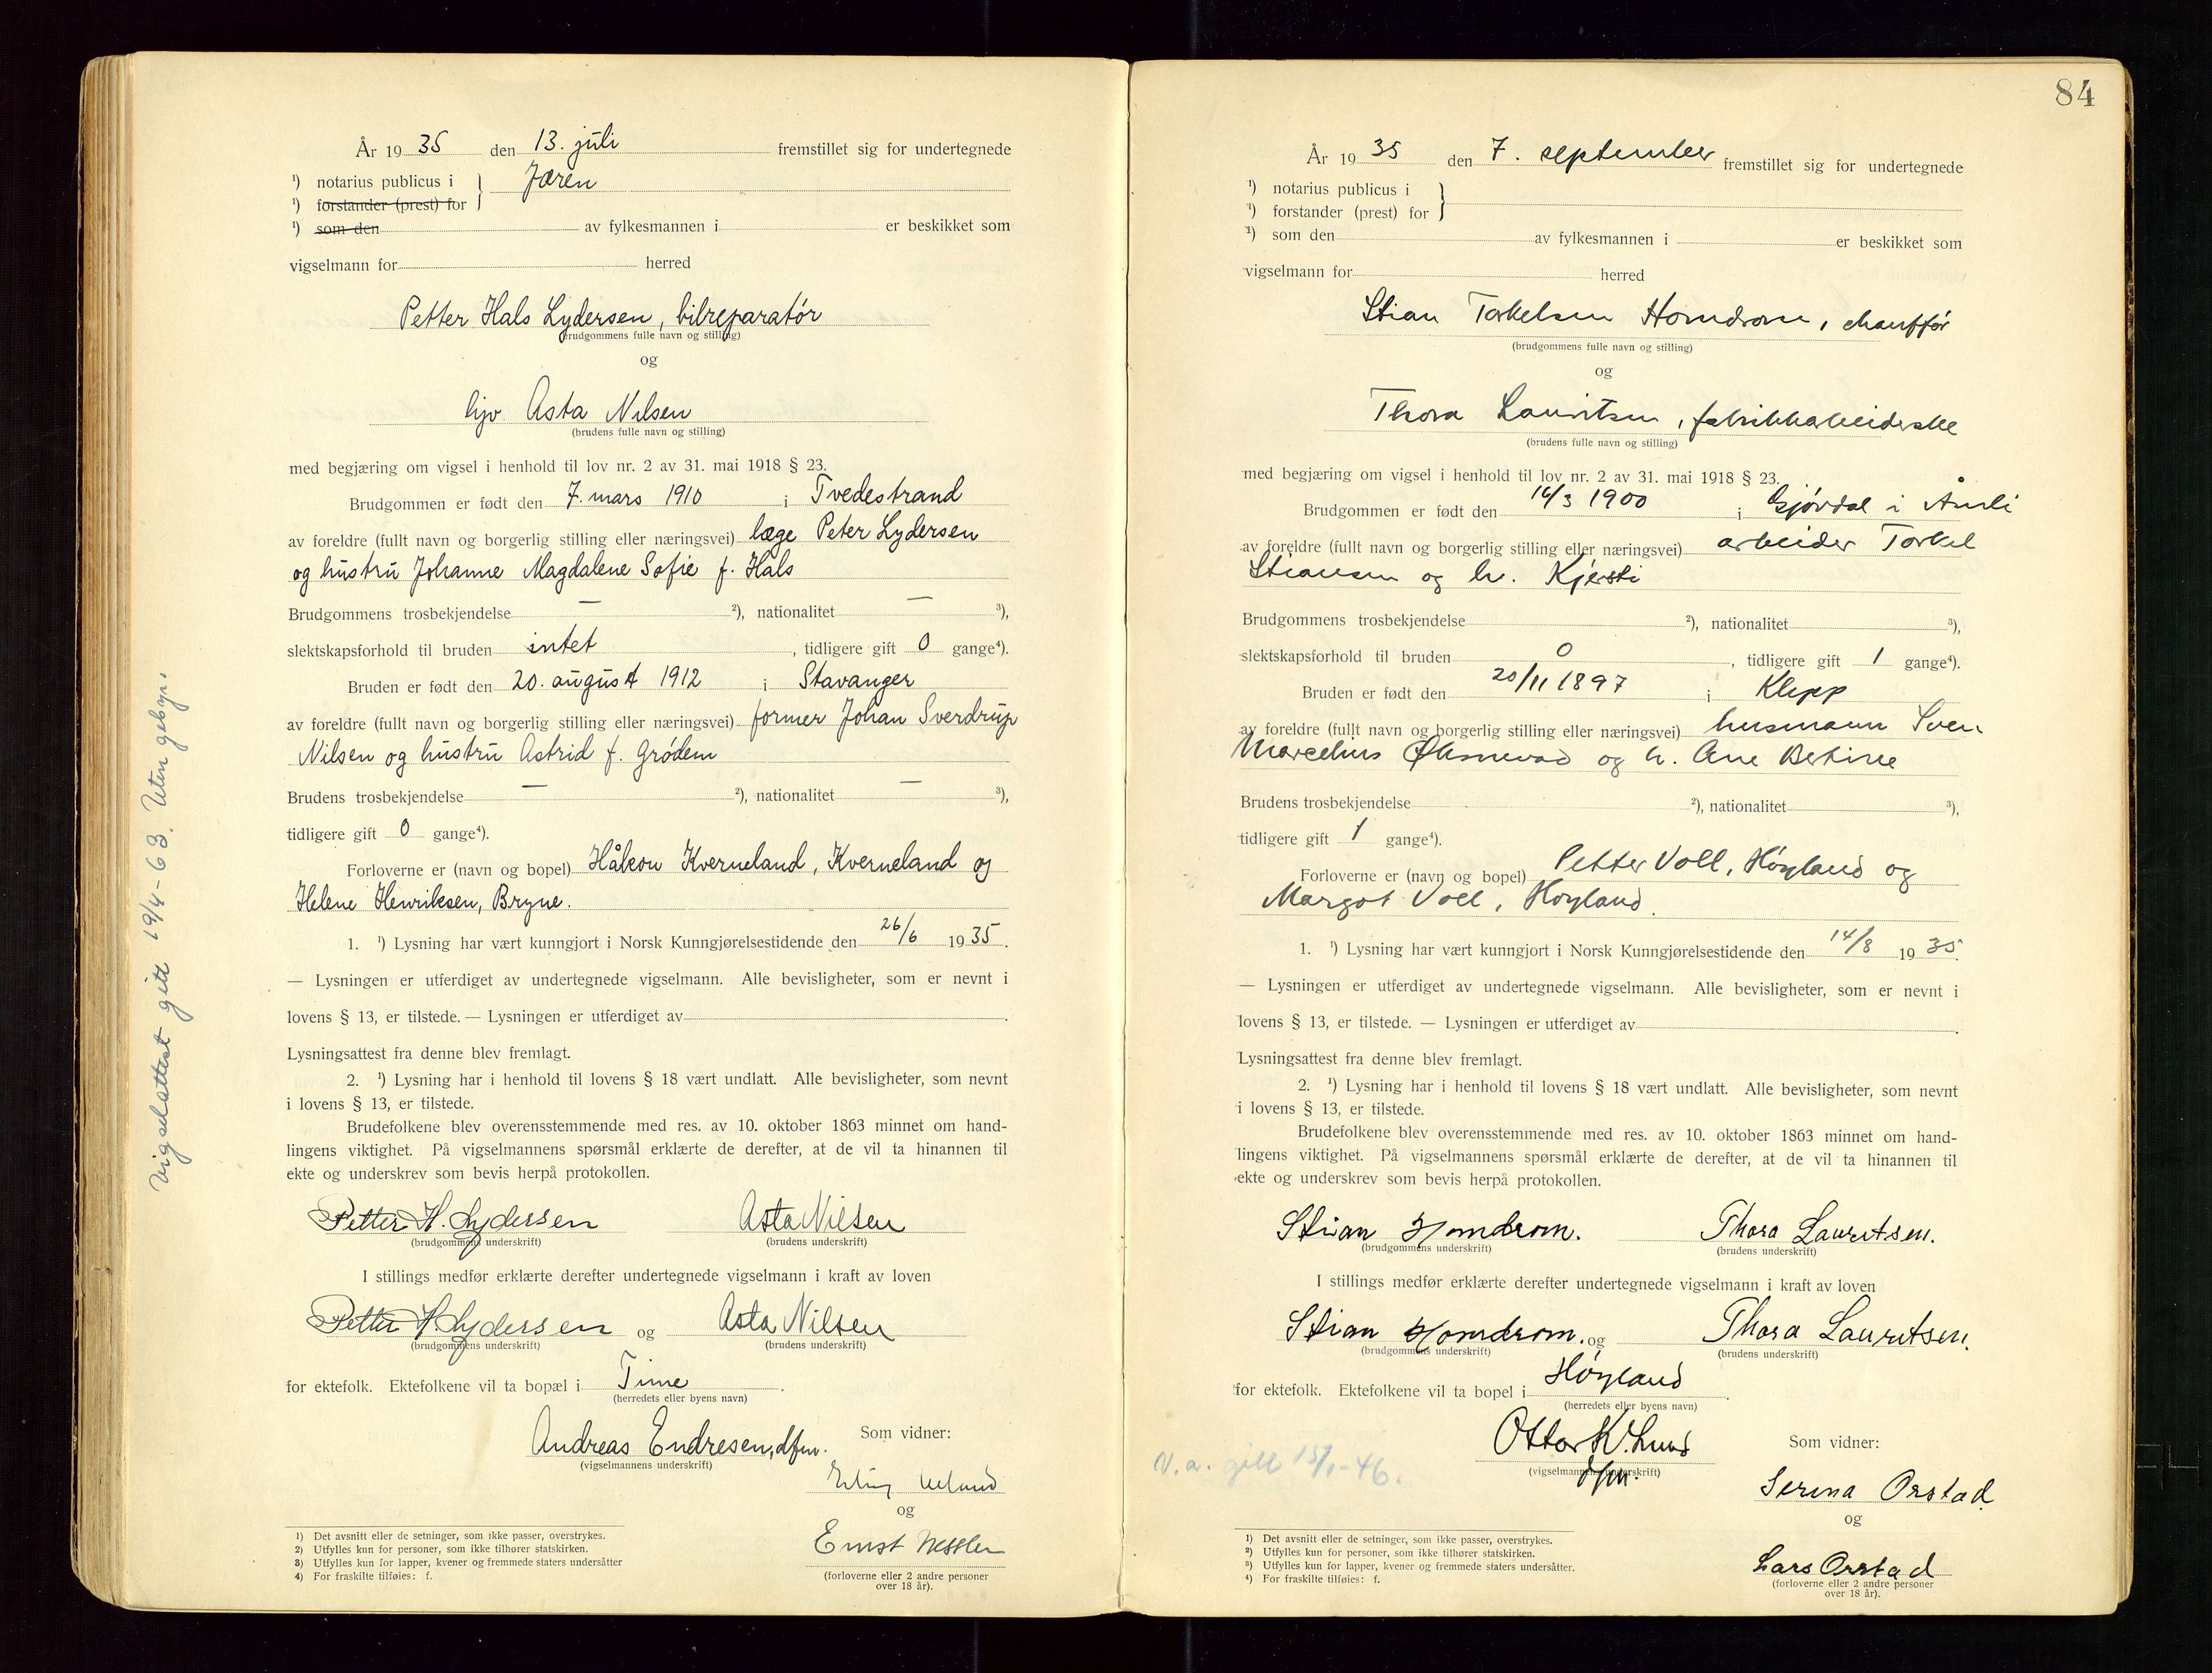 År 19 35 den 13. juli fremstillet sig for undertegnede
¹) notarius publicus i } Jæren
¹) forstander (prest) for
¹) som den av fylkesmannen i er beskikket som
vigselmann for herred
Petter Hals Lydersen, bilreparatør
(brudgommens fulle navn og stilling)
og
Asta Nilsen
(brudens fulle navn og stilling)
med begjæring om vigsel i henhold til lov nr. 2 av 31. mai 1918 § 23.
Brudgommen er født den 7. mars 1910 i Tvedestrand
av foreldre (fullt navn og borgerlig stilling eller næringsvei) læge Peter Lydersen
og hustru Johanne Magdalene Sofie f. Hals
Brudgommens trosbekjendelse — ²), nationalitet — ³),
slektskapsforhold til bruden intet , tidligere gift 0 gange⁴).
Bruden er født den 20. august 1912 i Stavanger
av foreldre (fullt navn og borgerlig stilling eller næringsvei) former Johan Sverdrup
Nilsen og hustru Astrid f. Grødem
Brudens trosbekjendelse — ²), nationalitet — ³),
tidligere gift 0 gange⁴).
Forloverne er (navn og bopel) Håkon Kverneland, Kverneland og
Helene Henriksen, Bryne.
1. ¹) Lysning har vært kunngjort i Norsk Kunngjørelsestidende den 26/6 1935.
— Lysningen er utferdiget av undertegnede vigselmann. Alle bevisligheter, som er nevnt i
lovens § 13, er tilstede. — Lysningen er utferdiget av .
Lysningsattest fra denne blev fremlagt.
2. ¹) Lysning har i henhold til lovens § 18 vært undlatt. Alle bevisligheter, som nevnt
i lovens § 13, er tilstede.
Brudefolkene blev overensstemmende med res. av 10. oktober 1863 minnet om hand-
lingens viktighet. På vigselmannens spørsmål erklærte de derefter, at de vil ta hinannen til
ekte og underskrev som bevis herpå protokollen.
Petter H. Lydersen Asta Nilsen
(brudgommens underskrift) (brudens underskrift)
I stillings medfør erklærte derefter undertegnede vigselmann i kraft av loven
Petter H. Lydersen og Asta Nilsen
(brudgommens underskrift) (brudens underskrift)
for ektefolk. Ektefolkene vil ta bopæl i Time .
(herredets eller byens navn)
Andreas Endresen, dfm. Som vidner:
(vigselmannens underskrift)
og
Ernst
(forloverne eller 2 andre personer
over 18 år).
1) Det avsnitt eller de setninger, som ikke passer, overstrykes.
2) Utfylles kun for personer, som ikke tilhører statskirken.
3) Utfylles kun for lapper, kvener og fremmede staters undersåtter
4) For fraskilte tilføies: f.
Vigselattest gitt 19/4-63. Uten gebyr.
84
År 19 35 den 7. september fremstillet sig for undertegnede
¹) notarius publicus i }
¹) forstander (prest) for
¹) som den av fylkesmannen i er beskikket som
vigselmann for herred
Stian Torkelsen Homdrom, chauffør
(brudgommens fulle navn og stilling)
og
Thora Lauritsen, fabrikkarbeiderske
(brudens fulle navn og stilling)
med begjæring om vigsel i henhold til lov nr. 2 av 31. mai 1918 § 23.
Brudgommen er født den 16/3 1900 i Gjøvdal i Åmli
av foreldre (fullt navn og borgerlig stilling eller næringsvei) arbeider Torkel
Stiansen og h. Kjersti
Brudgommens trosbekjendelse ²), nationalitet ³),
slektskapsforhold til bruden 0 , tidligere gift 1 gange⁴).
Bruden er født den 20/11 1897 i Klepp
av foreldre (fullt navn og borgerlig stilling eller næringsvei) husmann Sven
Marcelius Øksnevad og h. Ane Bertine
Brudens trosbekjendelse ²), nationalitet ³),
tidligere gift 1 gange⁴).
Forloverne er (navn og bopel) Petter Voll, Høyland og
Margot Voll, Høyland.
1. ¹) Lysning har vært kunngjort i Norsk Kunngjørelsestidende den 14/8 1935.
— Lysningen er utferdiget av undertegnede vigselmann. Alle bevisligheter, som er nevnt i
lovens § 13, er tilstede. — Lysningen er utferdiget av .
Lysningsattest fra denne blev fremlagt.
2. ¹) Lysning har i henhold til lovens § 18 vært undlatt. Alle bevisligheter, som nevnt
i lovens § 13, er tilstede.
Brudefolkene blev overensstemmende med res. av 10. oktober 1863 minnet om hand-
lingens viktighet. På vigselmannens spørsmål erklærte de derefter, at de vil ta hinannen til
ekte og underskrev som bevis herpå protokollen.
Stian Homdrom. Thora Lauritsen.
(brudgommens underskrift) (brudens underskrift)
I stillings medfør erklærte derefter undertegnede vigselmann i kraft av loven
Stian Homdrom. og Thora Lauritsen.
(brudgommens underskrift) (brudens underskrift)
for ektefolk. Ektefolkene vil ta bopel i Høyland .
(herredets eller byens navn)
Ottar K. Lund Som vidner:
(vigselmannens underskrift)
dfm.
V.a. gitt 15/1-46.
Serina Orstad
og
Lars Orstad
(forloverne eller 2 andre personer
over 18 år).
1) Det avsnitt eller de setninger, som ikke passer, overstrykes.
2) Utfylles kun for personer, som ikke tilhører statskirken.
3) Utfylles kun for lapper, kvener og fremmede staters undersåtter.
4) For fraskilte tilføies: f.